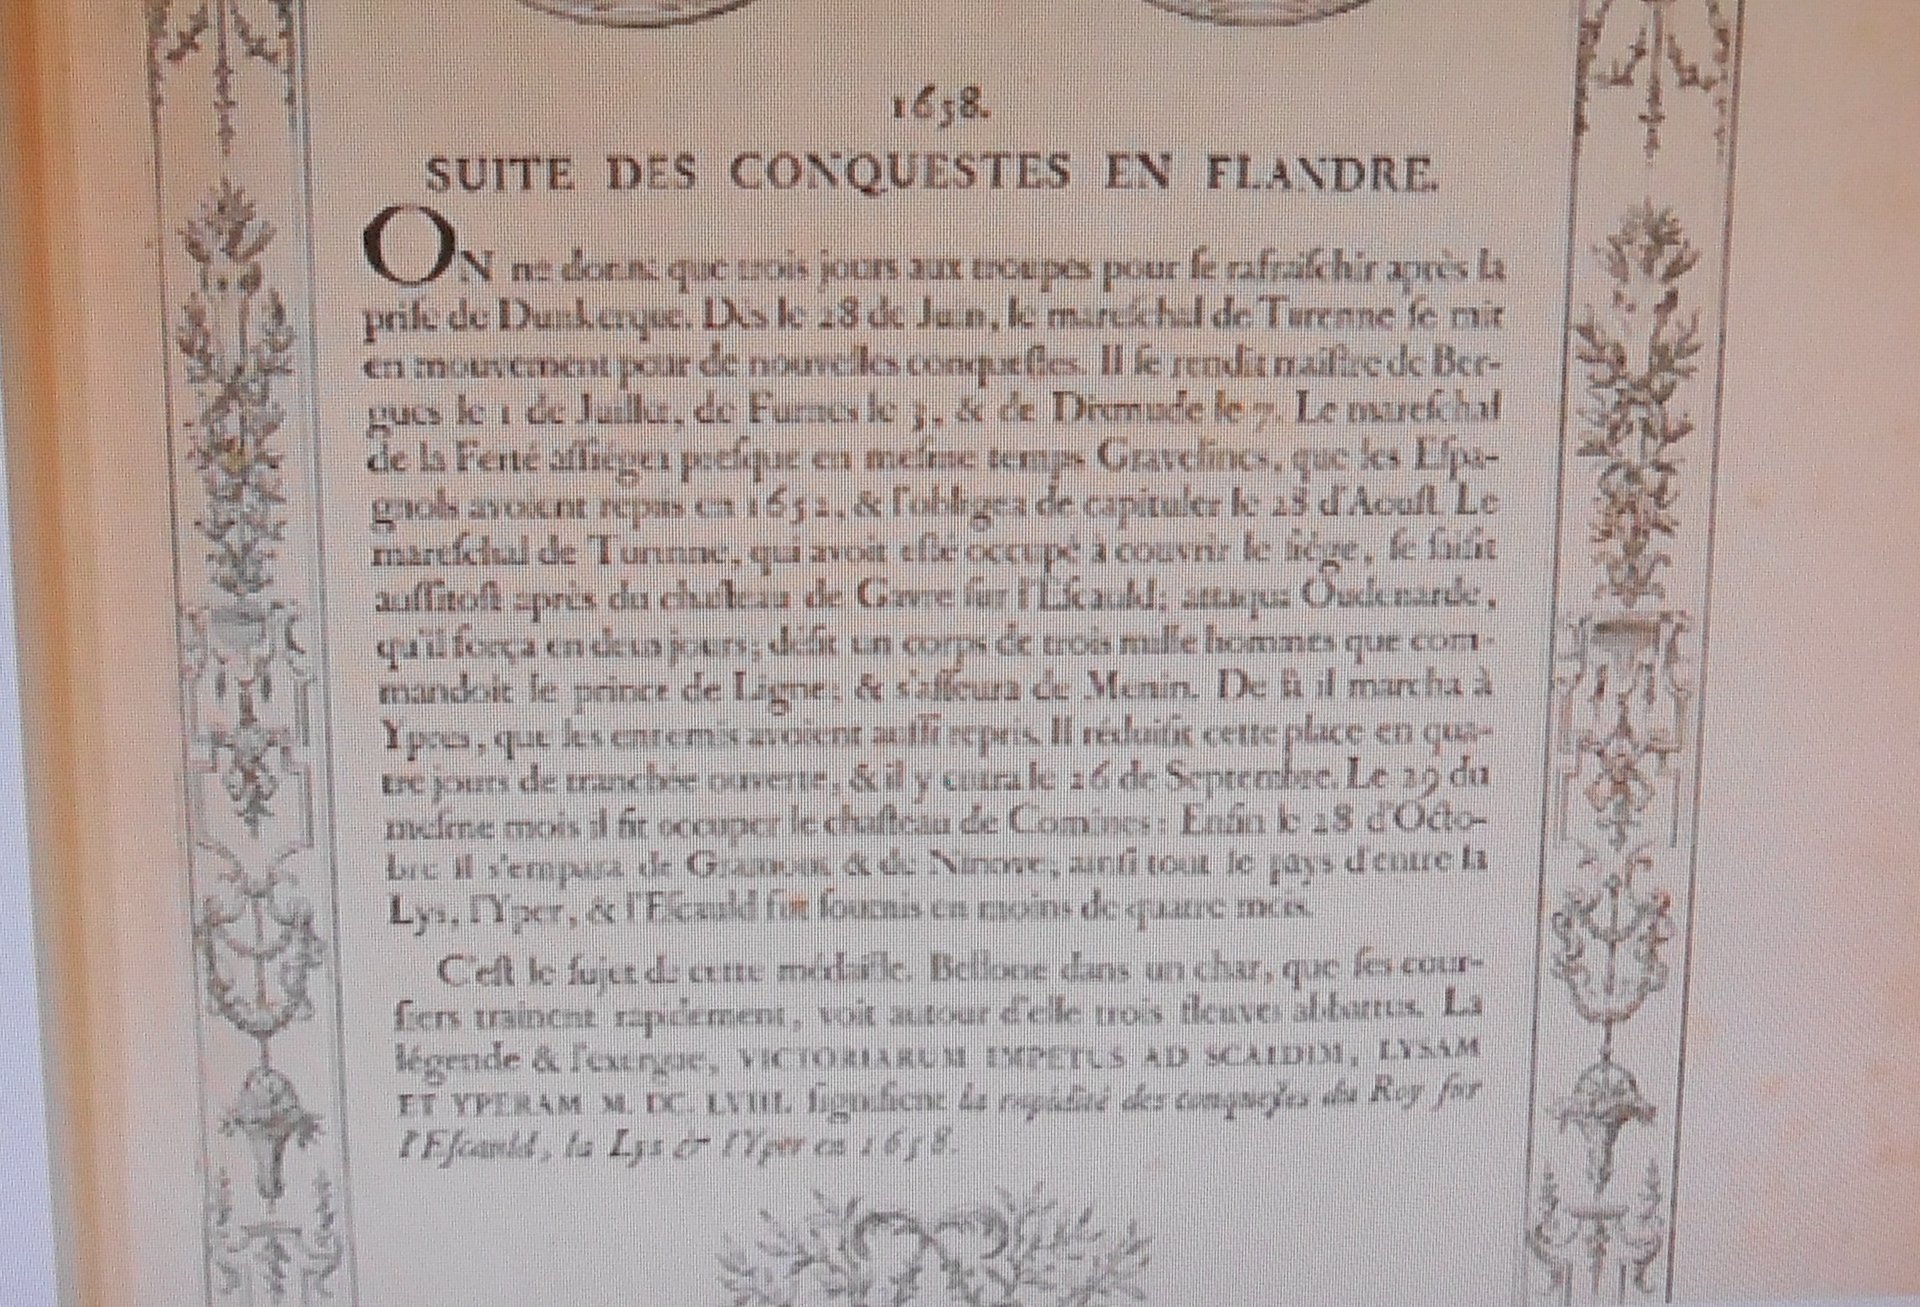 1658.
SUITE DES CONQUESTES EN FLANDRE.
ON ne donna que trois jours aux troupes pour se rafraischir après la
prise de Dunkerque. Dès le 28 de Juin, le mareschal de Turenne se mit
en mouvement pour de nouvelles conquestes. Il se rendit maistre de Ber-
gues le 1 de Juillet, de Furnes le 3, & de Dixmude le 7. Le mareschal
de la Ferté assiégea presque en mesme temps Gravelines, que les Espa-
gnols avoient repris en 1652, & l'obligea de capituler le 28 d'Aoust. Le
mareschal de Turenne, qui avoit esté occupé à couvrir le siége, se saisit
aussitost après du chasteau de Gavre sur l'Escauld; attaqua Oudenarde,
qu'il força en deux jours; défit un corps de trois mille hommes que com-
mandoit le prince de Ligne; & s'asseura de Menin. De là il marcha à
Ypres, que les ennemis avoient aussi repris. Il réduisit cette place en qua-
tre jours de tranchée ouverte, & il y entra le 26 de Septembre. Le 29 du
mesme mois il fit occuper le chasteau de Comines: Enfin le 28 d'Octo-
bre il s'empara de Gramont & de Ninove; ainsi tout le pays d'entre la
Lys, l'Yper, & l'Escauld fut soumis en moins de quatre mois.
C'est le sujet de cette médaille. Bellone dans un char, que ses cour-
siers trainent rapidement, voit autour d'elle trois fleuves abbattus. La
légende & l'exergue, VICTORIARUM IMPETUS AD SCALDIM, LYSAM
ET YPERAM M. DC. LVIII. signifient la rapidité des conquestes du Roy sur
l'Escauld, la Lys & l'Yper en 1658.